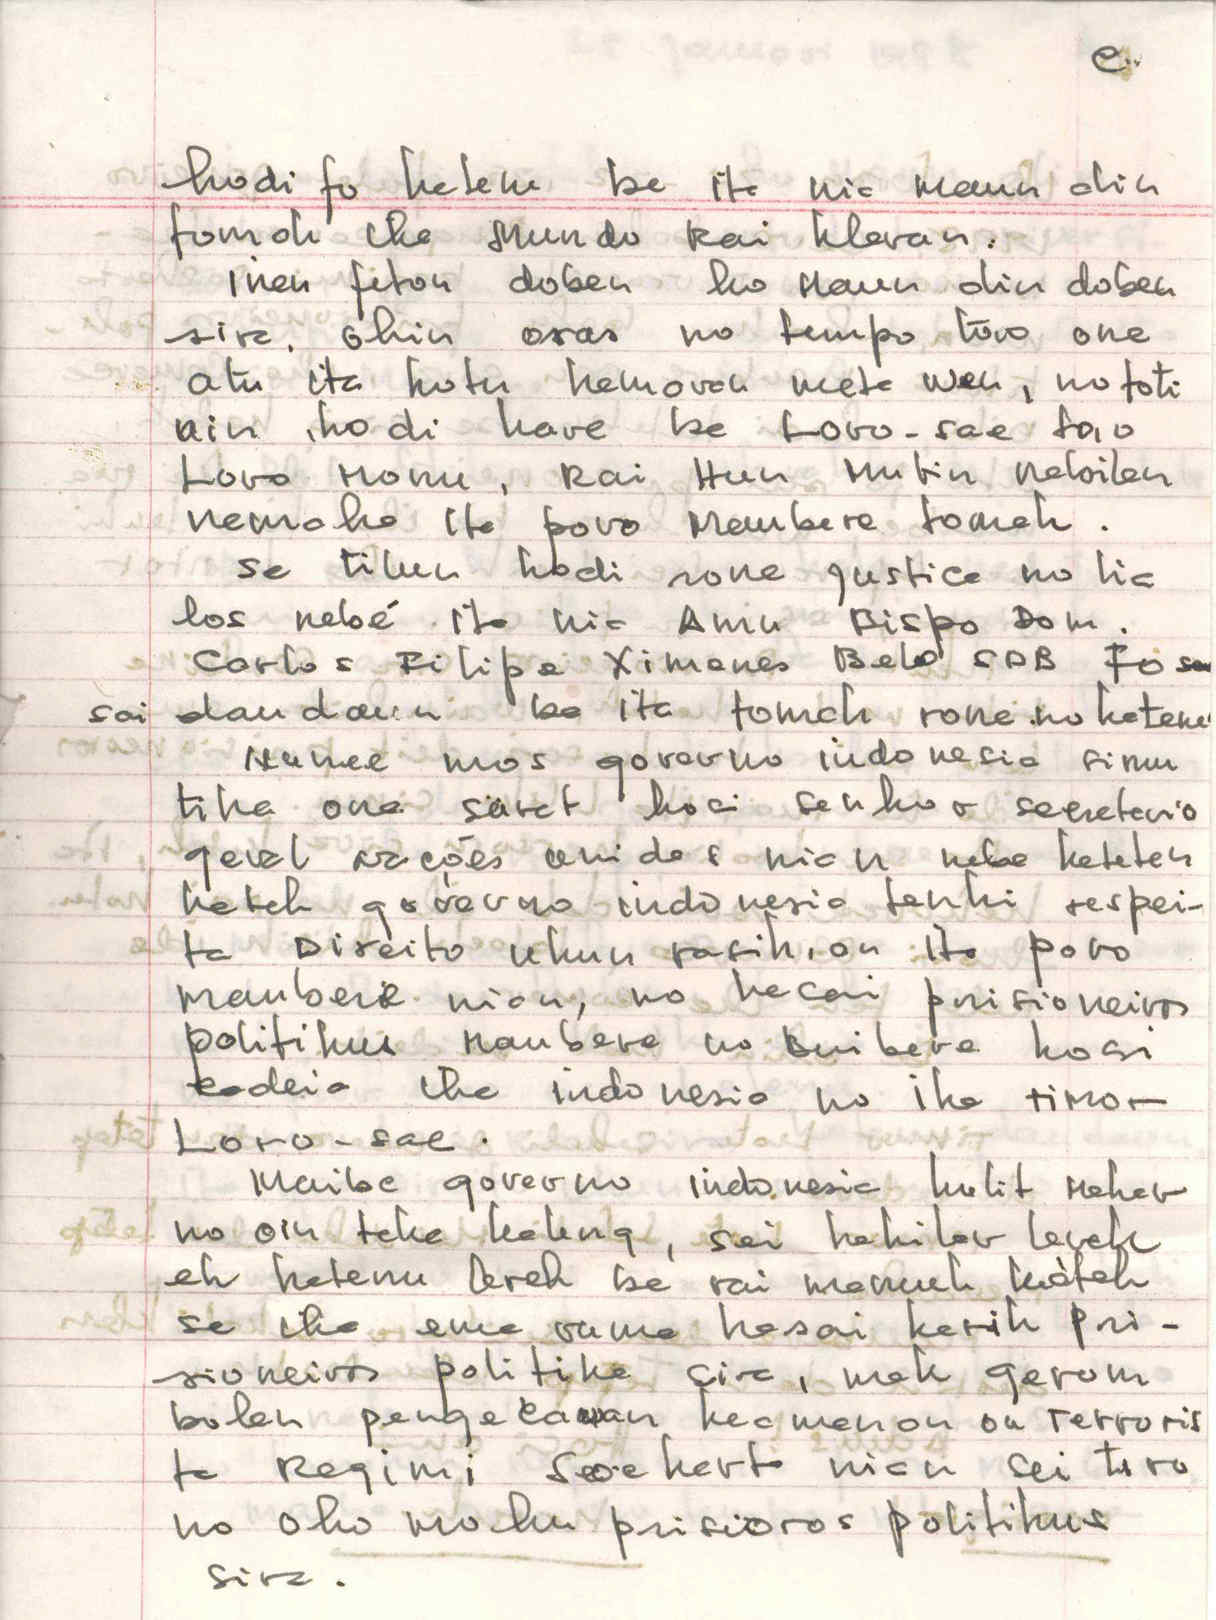 e..
hodi fo hatene ba ita nia maun alin
tomak iha Mundo Rai klaran.
Inan feton doben ho Maun alin doben
sira, ohin oras no tempo to'o ona
atu ita hotu hamoran mata wen, no foti
ain, hodi hare ba Loro-sae to'o
Loro Monu, Rai Hun Mutin
ita povo Maubere tomak.
se tilun hodi rona justica no lia
los nebé ita nia Amu Bispo Dom.
Carlos Filipe Ximenes Belo SDB Fo
sai daudaun ba ita tomak rona no hatene
Nunee mos governo indonesia simu
tiha ona surat hosi senhor secretario
geral nações unidas nian nebe hateten
katak governo indonesia tenki respei-
ta Direito ukun rasik, an ita povo
maubere nian, no hasai prisioneiros
politikus Maubere no Buibere hosi
cadeia iha indonesia no iha Timor
Loro-sae.
Maibe governo indonesia kulit Mahar
no oin taka kaleng, sei
ba rai katak
se iha ema ruma hasai karik pri-
sioneiros politika sira, mak
bolen pengecawan keamanan an Terroris
ta Regimi Soeharto nian sei tiro
no oho moku prisioros politikus
sira.